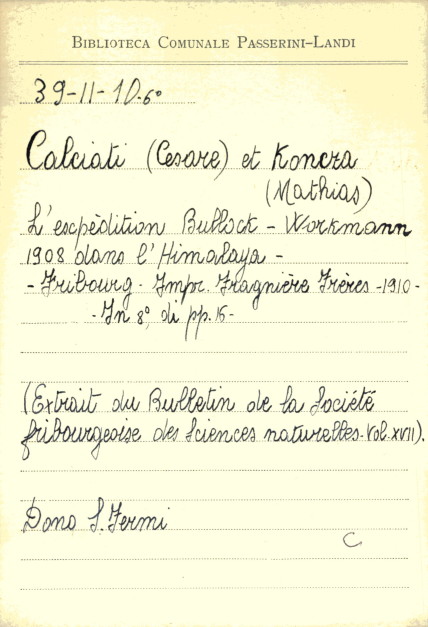 BIBLIOTECA COMUNALE PASSERINI-LANDI
39-11-10.6°
Calciati (Cesare) et Koncza
(Mathias)
L'escpèdition Bullock - Workmann
1908 dans l'Himalaya -
- Fribourg - Impr. Fragnière Frères - 1910 -
- In 8°, di pp. 16 -
(Extrait du Bulletin de la Société
fribourgeoise des Sciences naturelles. Vol. XVII).
Dono S. Fermi
C